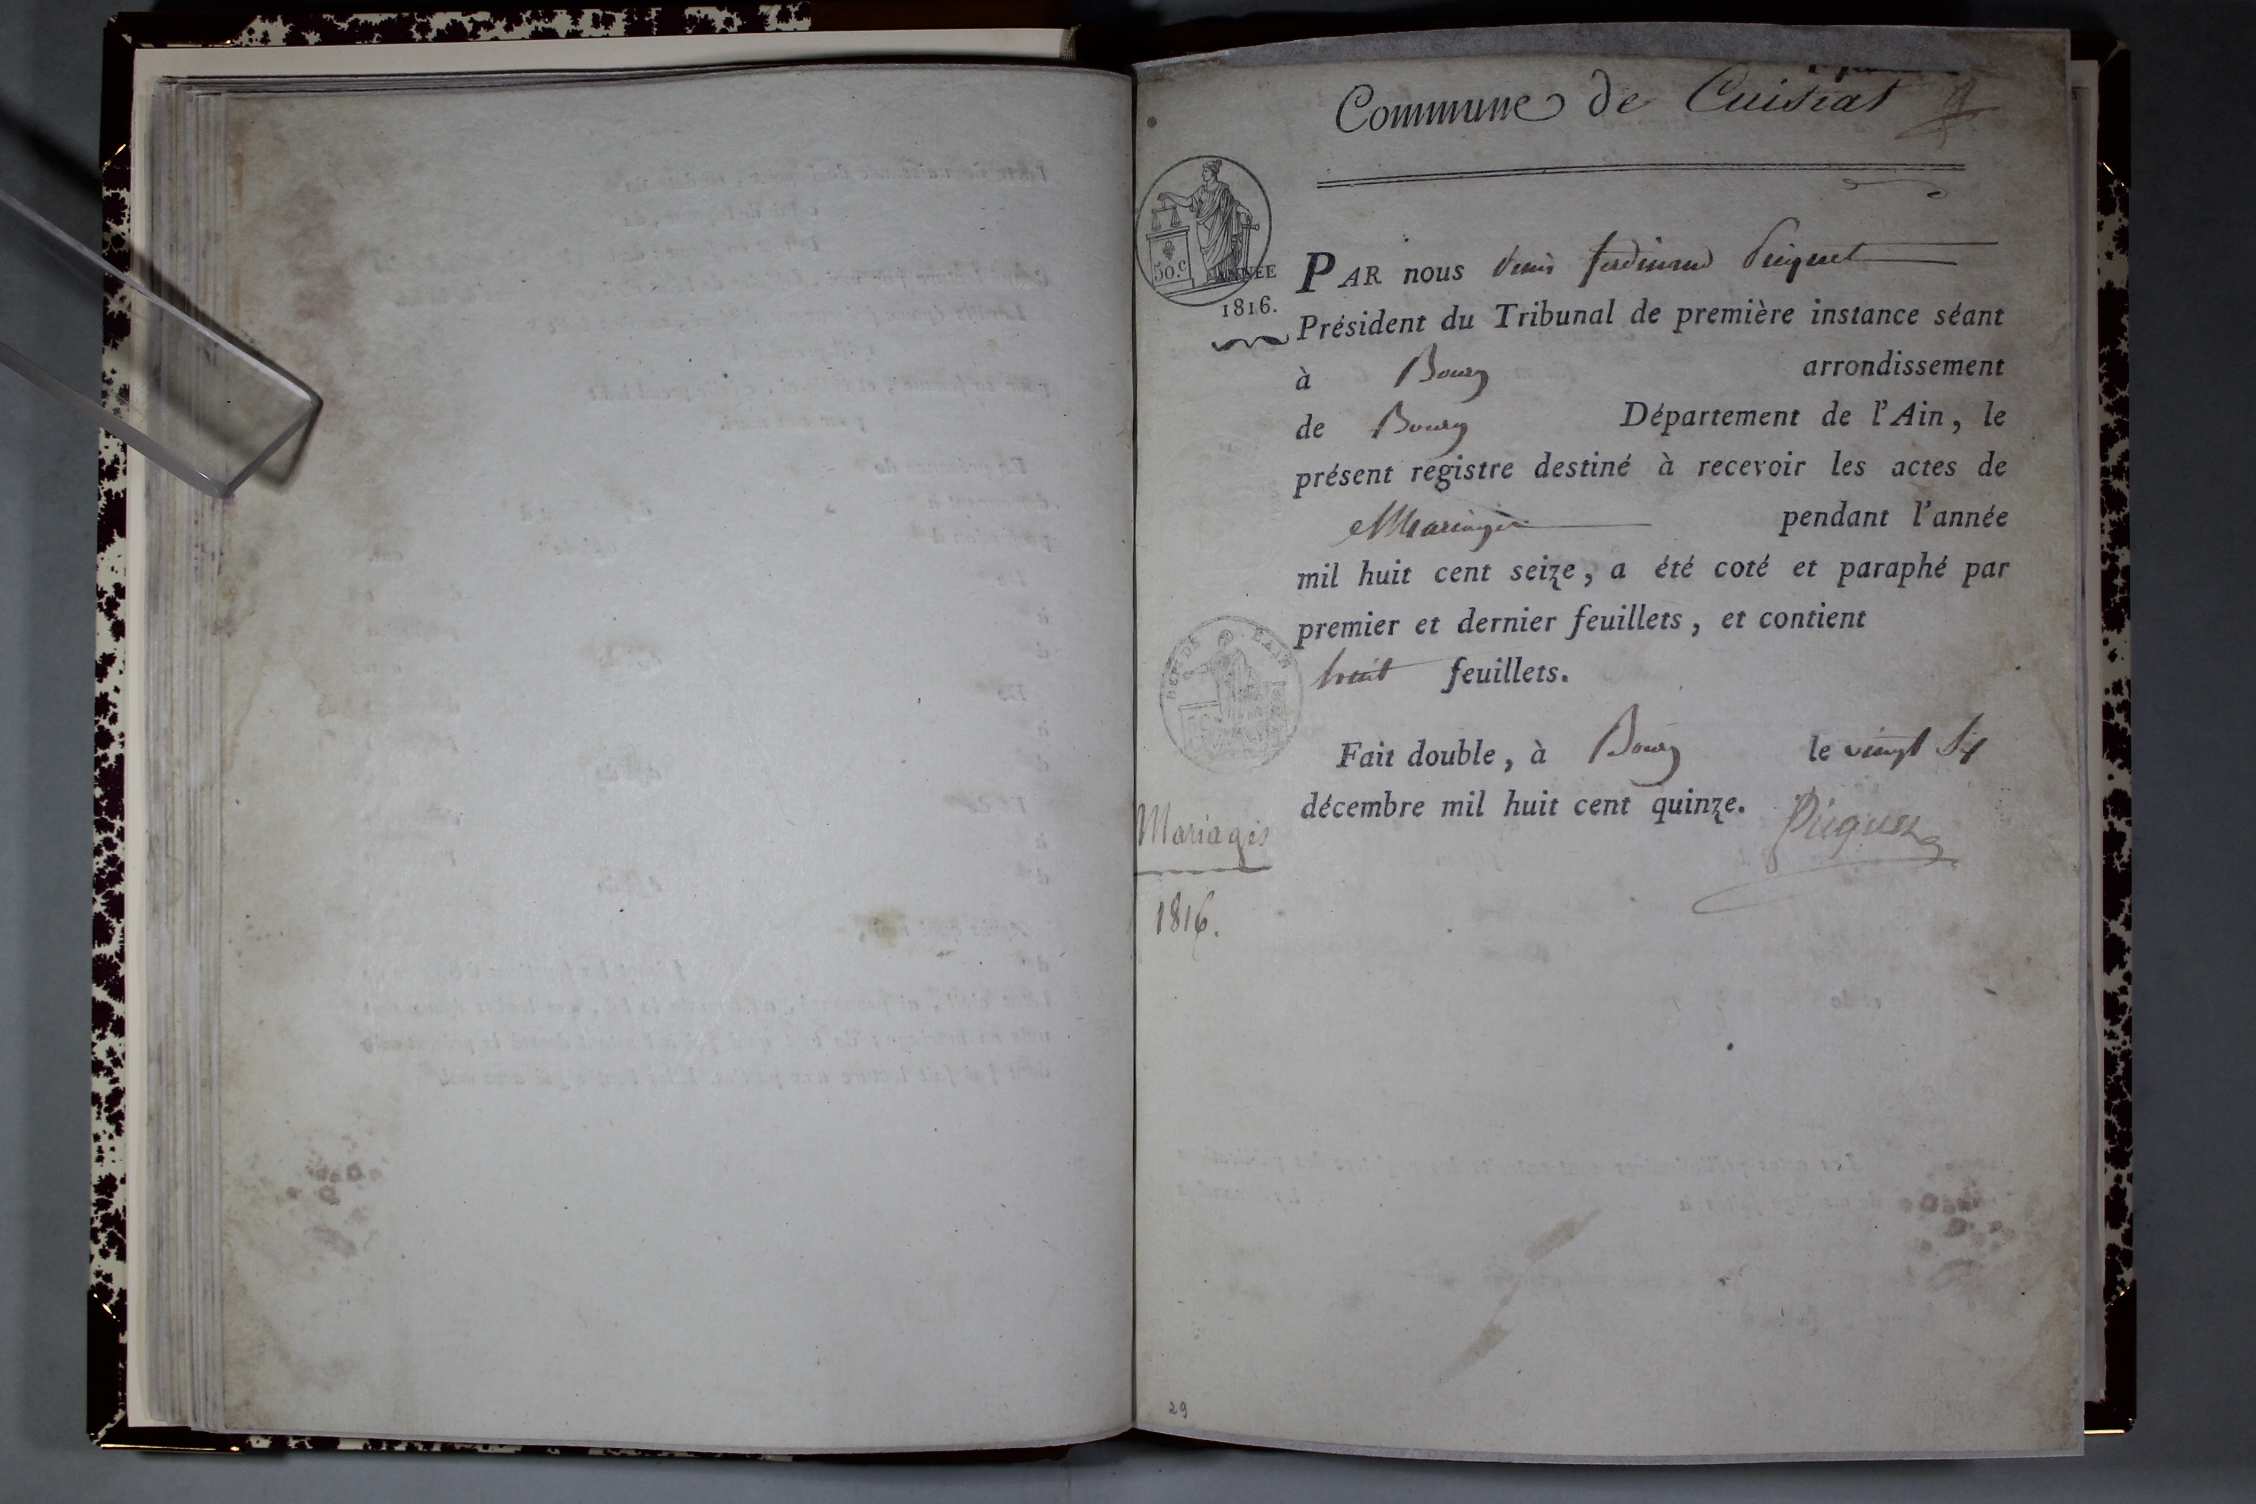 Commune de Cuisiat
50.c
ANNÉE
1816.
PAR nous Denis ferdinand Piquet
Président du Tribunal de première instance séant
à Bourg arrondissement
de Bourg Département de l'Ain, le
présent registre destiné à recevoir les actes de
Mariages pendant l'année
mil huit cent seize, a été coté et paraphé par
premier et dernier feuillets, et contient
huit feuillets.
DEPT DE L'AIN
Fait double, à Bourg le vingt six
décembre mil huit cent quinze.
Piquet
Mariages
1816.
29